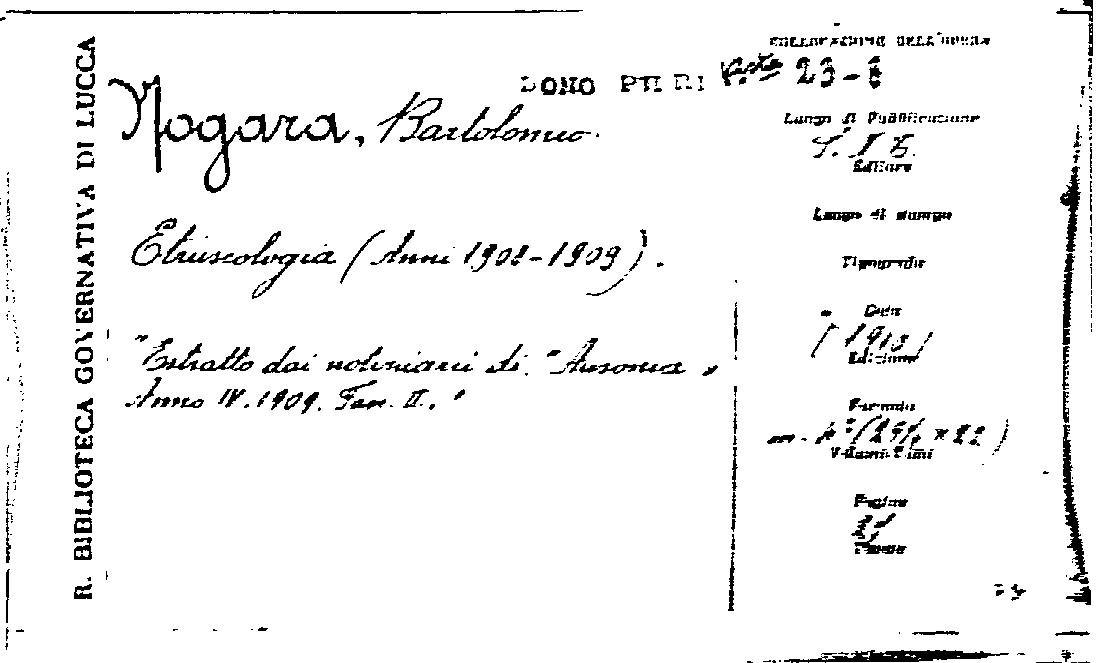 R. BIBLIOTECA GOVERNATIVA DI LUCCA
COLLOCAZIONE DELL'OPERA
DONO PIERI 23-8
Nogara, Bartolomeo.
Luogo di Pubblicazione
Editore
Etruscologia (Anni 1908-1909).
Luogo di stampa
Tipografia
Data
(1910)
Edizione
"Estratto dai notiziari di "Ausonia"
Anno IV. 1909. Fasc. II."
Formato
Volumi-Tomi
Pagine
Tavole